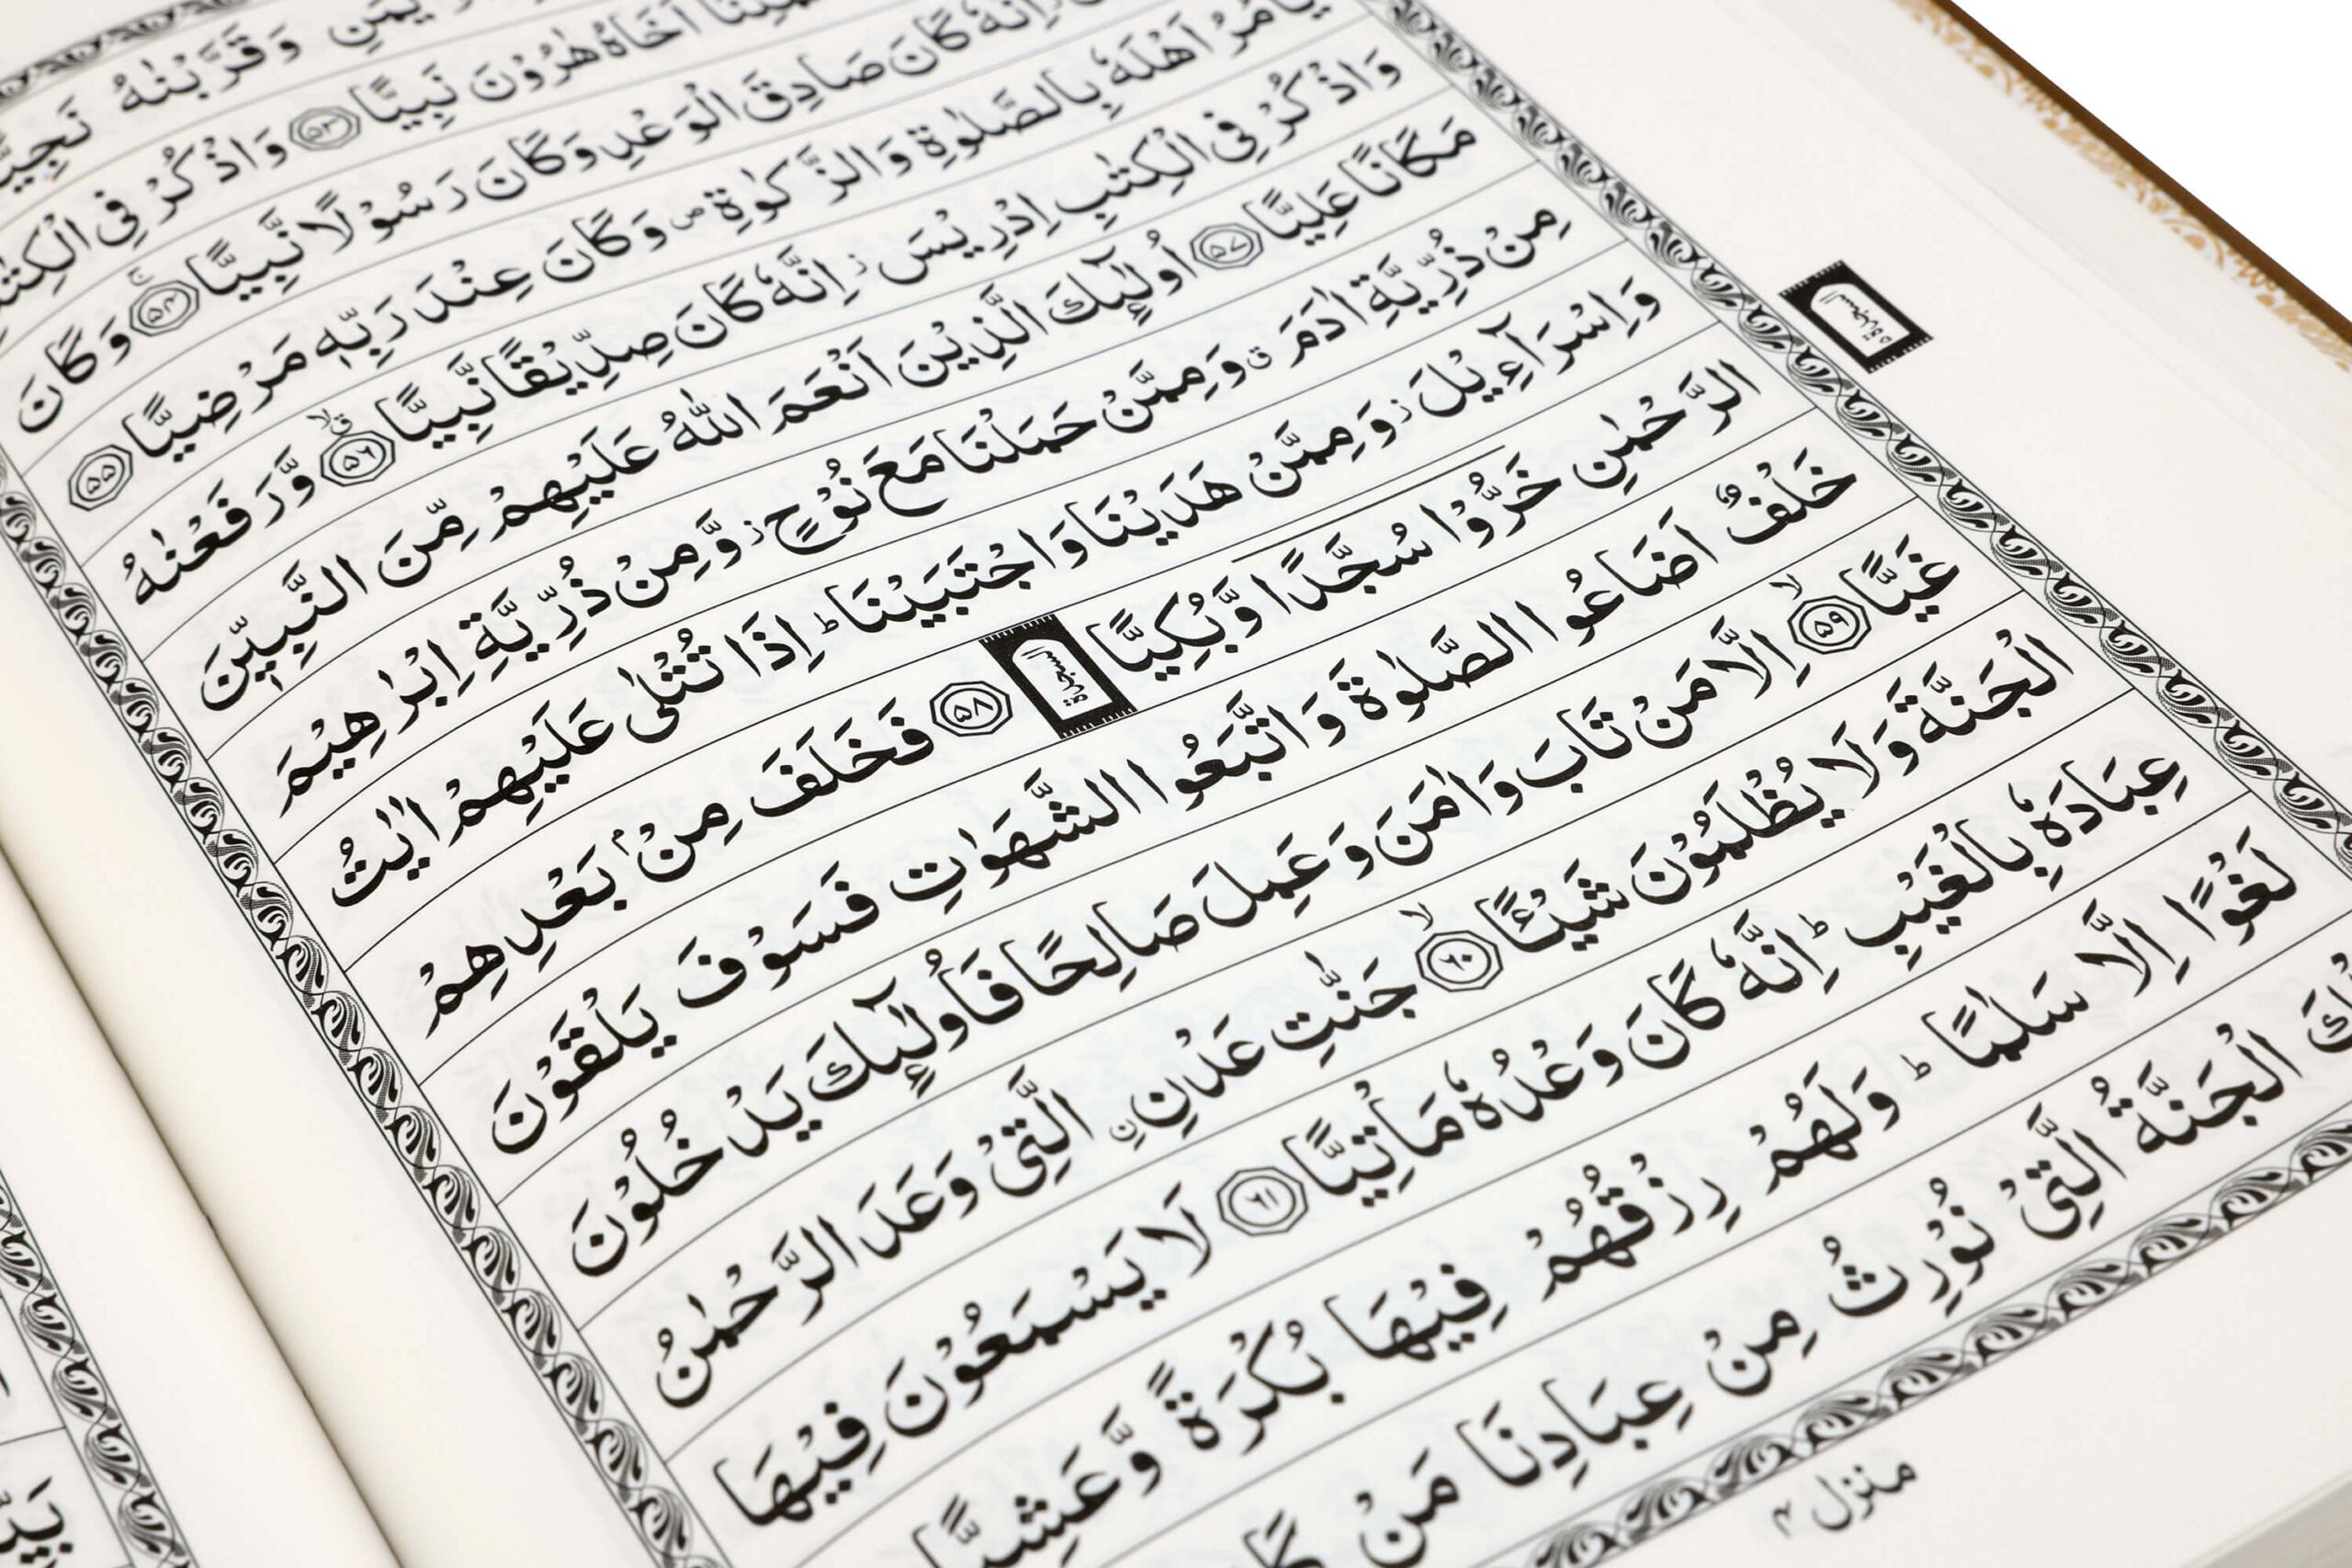 يْمَنِ وَقَرَّبْنٰهُ نَجِيًّا
اَخَاهُ هٰرُوْنَ نَبِيًّا ۝۵۳ وَاذْكُرْ فِى الْكِتٰبِ
اِنَّهٗ كَانَ صَادِقَ الْوَعْدِ وَكَانَ رَسُوْلًا نَّبِيًّا ۝۵۴ وَكَانَ
يَاْمُرُ اَهْلَهٗ بِالصَّلٰوةِ وَالزَّكٰوةِ ص وَكَانَ عِنْدَ رَبِّهٖ مَرْضِيًّا ۝۵۵
وَاذْكُرْ فِى الْكِتٰبِ اِدْرِيْسَ ز اِنَّهٗ كَانَ صِدِّيْقًا نَّبِيًّا ۝۵۶ وَّرَفَعْنٰهُ
مَكَانًا عَلِيًّا ۝۵۷ اُولٰٓئِكَ الَّذِيْنَ اَنْعَمَ اللّٰهُ عَلَيْهِمْ مِّنَ النَّبِيّٖنَ
مِنْ ذُرِّيَّةِ اٰدَمَ ق وَمِمَّنْ حَمَلْنَا مَعَ نُوْحٍ ز وَّمِنْ ذُرِّيَّةِ اِبْرٰهِيْمَ
وَاِسْرَآءِيْلَ ز وَمِمَّنْ هَدَيْنَا وَاجْتَبَيْنَا ط اِذَا تُتْلٰى عَلَيْهِمْ اٰيٰتُ
الرَّحْمٰنِ خَرُّوْا سُجَّدًا وَّبُكِيًّا السجدة ۝۵۸ فَخَلَفَ مِنْۢ بَعْدِهِمْ
السجدة ۵
خَلْفٌ اَضَاعُوا الصَّلٰوةَ وَاتَّبَعُوا الشَّهَوٰتِ فَسَوْفَ يَلْقَوْنَ
غَيًّا ۝۵۹ اِلَّا مَنْ تَابَ وَاٰمَنَ وَعَمِلَ صَالِحًا فَاُولٰٓئِكَ يَدْخُلُوْنَ
الْجَنَّةَ وَلَا يُظْلَمُوْنَ شَيْـًٔا ۝۶۰ جَنّٰتِ عَدْنِ ِۨالَّتِىْ وَعَدَ الرَّحْمٰنُ
عِبَادَهٗ بِالْغَيْبِ ط اِنَّهٗ كَانَ وَعْدُهٗ مَاْتِيًّا ۝۶۱ لَا يَسْمَعُوْنَ فِيْهَا
لَغْوًا اِلَّا سَلٰمًا ط وَلَهُمْ رِزْقُهُمْ فِيْهَا بُكْرَةً وَّعَشِيًّا
الْجَنَّةُ الَّتِىْ نُوْرِثُ مِنْ عِبَادِنَا مَنْ
منزل ۴